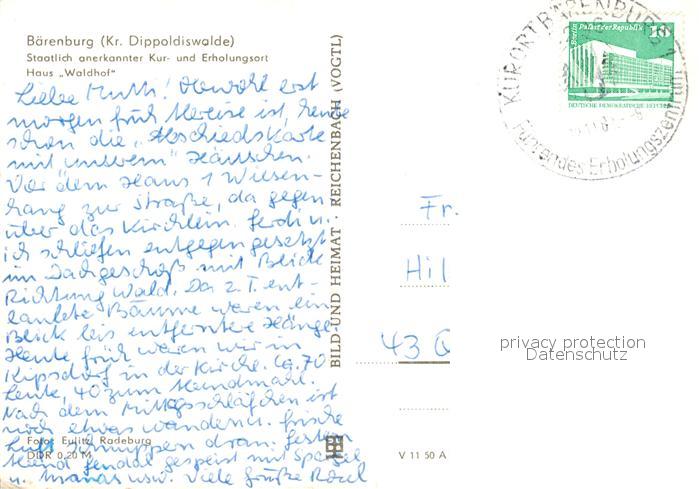 Bärenburg (Kr. Dippoldiswalde)
Staatlich anerkannter Kur- und Erholungsort
Haus „Waldhof"
Liebe Mutti! Obwohl erst
morgen früh Abreise ist, heute
schon die „Abschiedskarte
mit unserem" Häuschen.
Vor dem Haus 1 Wiesen-
hang zur Straße, da gegen
über das Kirchlein. Ferdi u.
ich schliefen entgegengesetzt
im Dachgeschoß mit Blick
Richtung Wald. Da z.T. ent-
laubte Bäume waren ein
Blick bis entferntere Hänge.
Heute früh waren wir in
Kipsdorf in der Kirche. Ca. 70
Leute, 40 zum Abendmahl.
Nach dem Mittagsschläfchen ist
noch etwas wandern u. frische
Luft schnuppern dran. Gestern
Abend feudal gespeist mit
u. usw. Viele Grüße
Foto: Eulitz, Radeburg
DDR 0,20 M
BILD UND HEIMAT · REICHENBACH (VOGTL)
V 11 50 A
Fr.
Hil
43 Q
privacy protection
Datenschutz
Berlin, Palast der Republik
10
DEUTSCHE DEMOKRATISCHE REPUBLIK
KURORT BÄRENBURG
Führendes Erholungszentrum